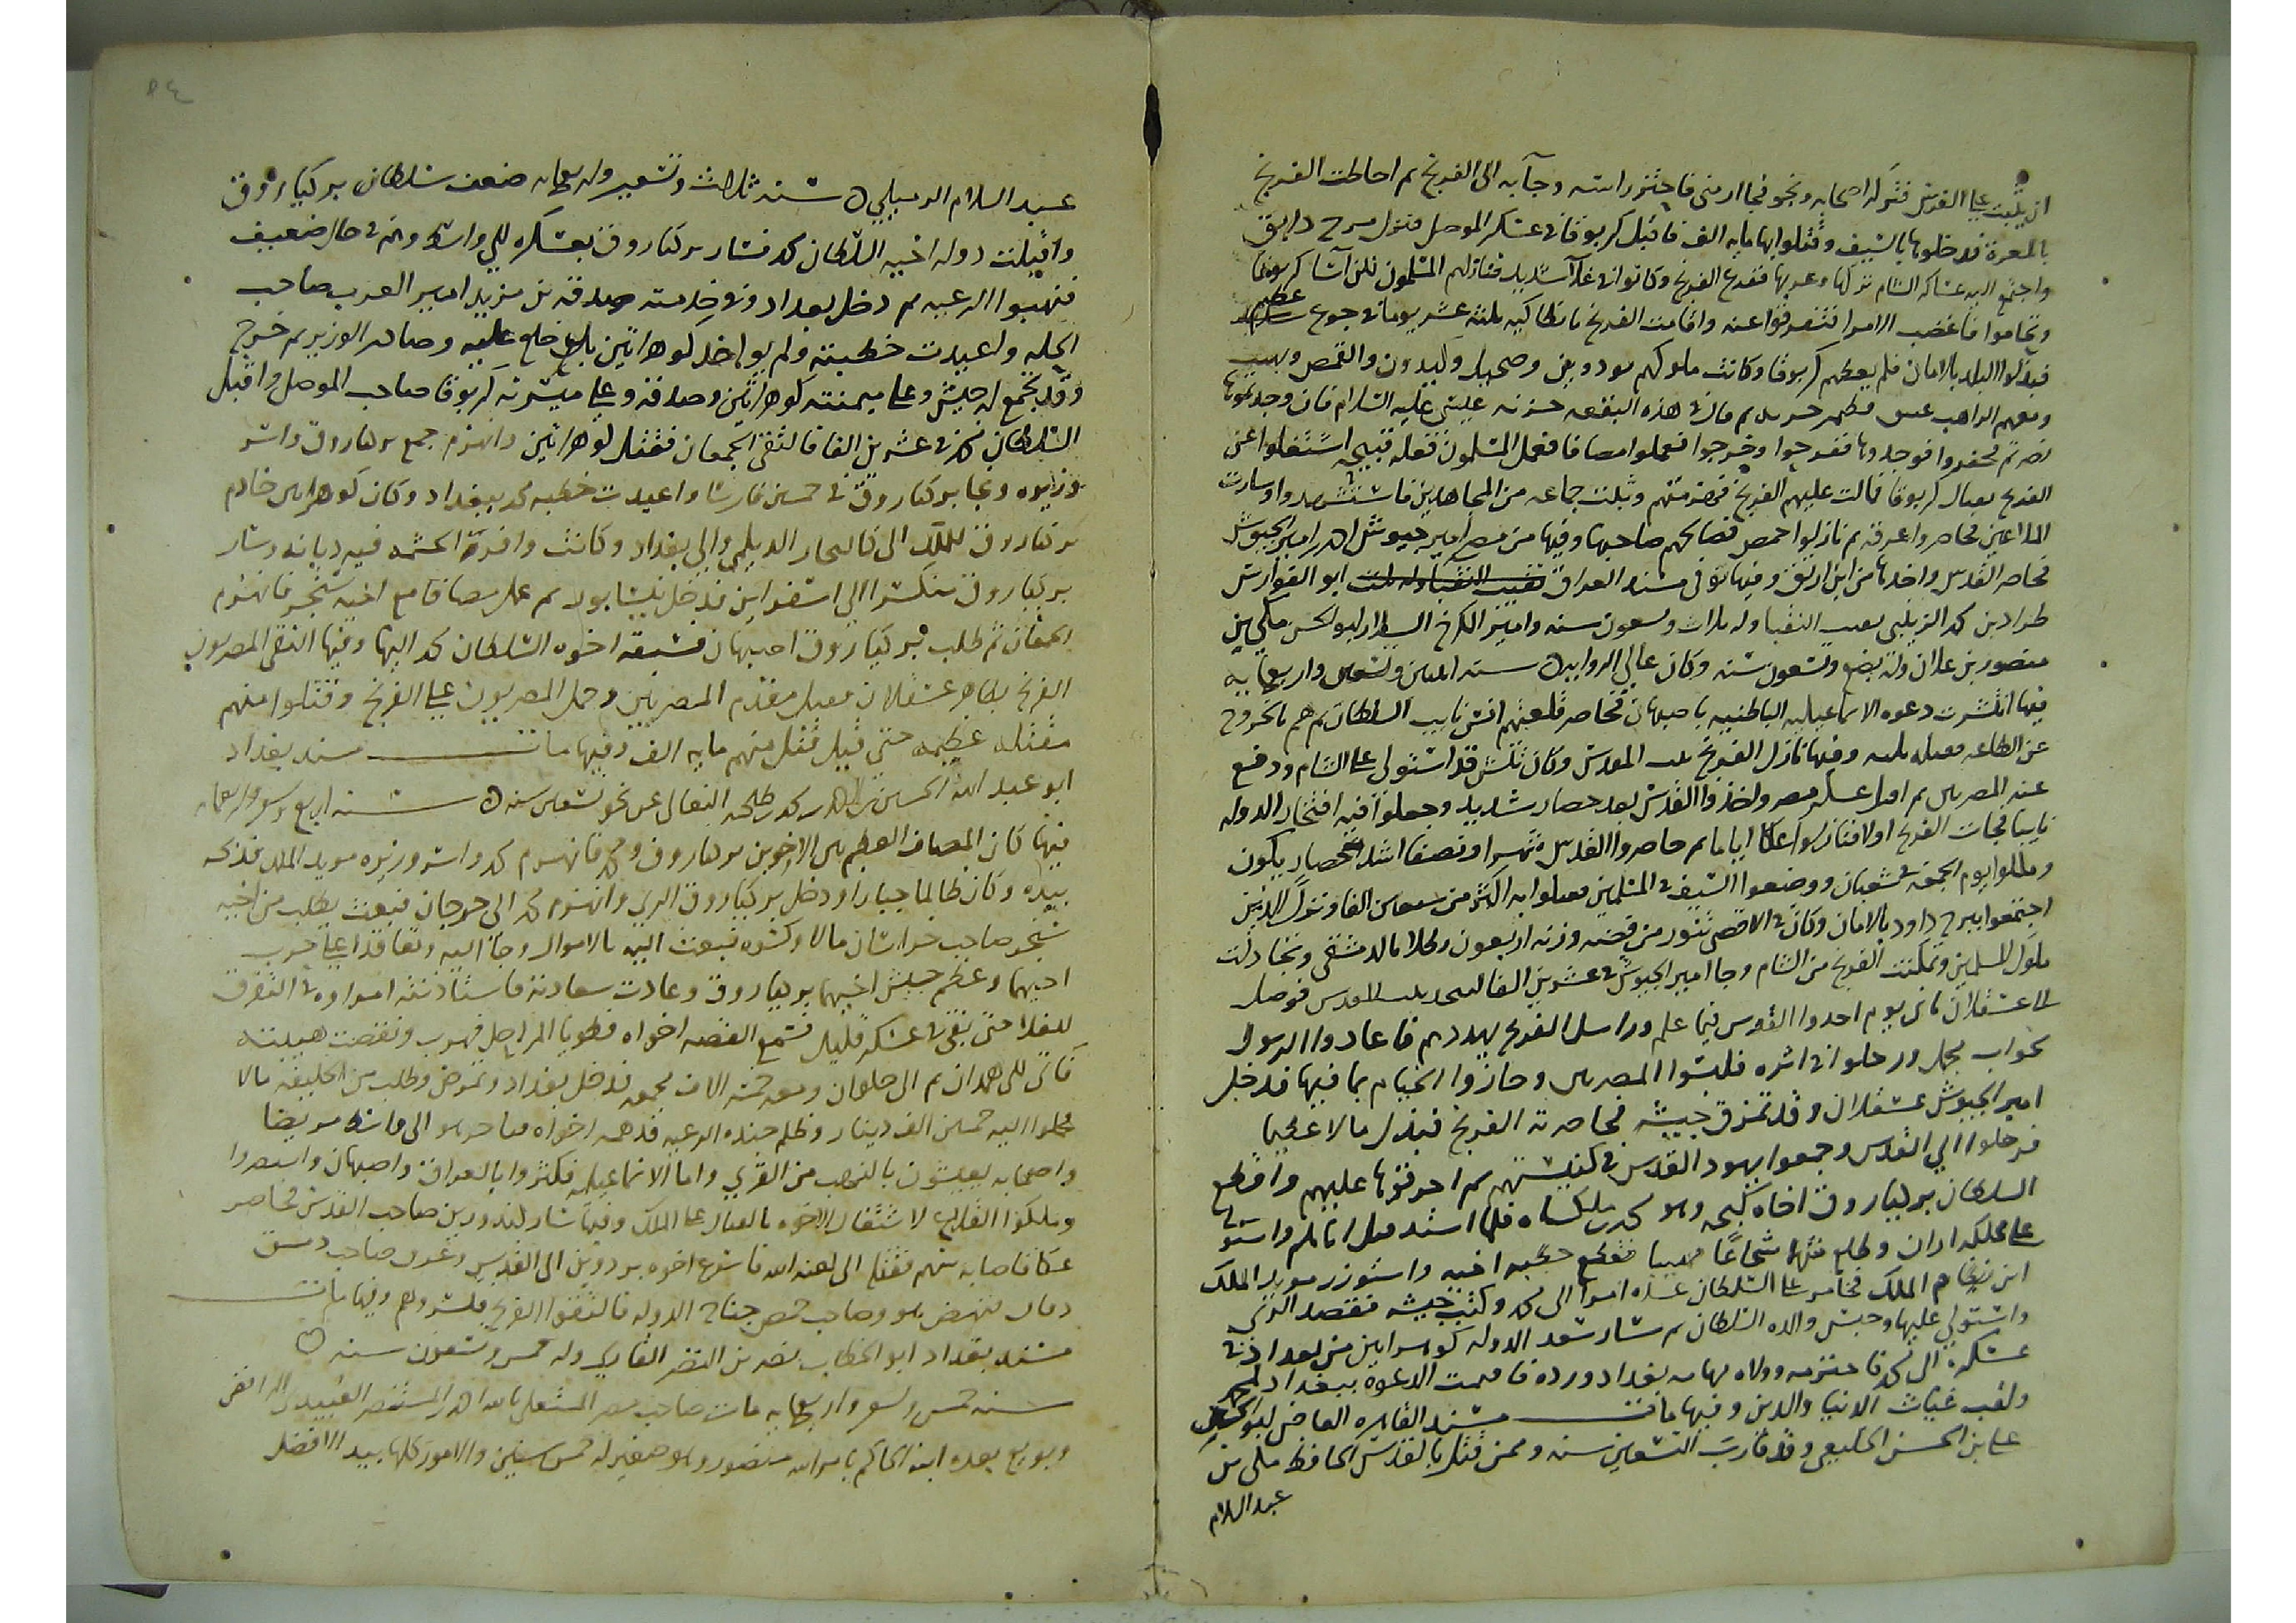 ان يلبث على الفرس فتركه اصحابه ونجو فجا ارمنى فاحتز راسه وجآ به الى الفرنج ثم احاطت الفرنج
بالمعرة فدخلوها بالسيف وقتلوا بها مايه الف فاقبل كربوقا فى عسكر الموصل فنزل مرج دابق
واجتمع اليه عساكر الشام تركها وعربها ففزع الفرنج وكانوا فى غلآ شديد فنازلهم المسلمون فلن اسا كربوقا
وتخامر فاغضب الامرا فتفرقوا عنه واقامت الفرنج بانطاكيه ثلثه عشر يوما فى جوع عظيم
فبذلوا البلد بالامان فلم يعطهم كربوقا وكانت ملوكهم بودوين وصنجيل وكندورن والقمص وبيمند
ومعهم الراهب فطهر ثم قال فى هذه البقعه حربه عيسى عليه السلام فان وجدتموها
نصرتم فحفروا فوجدوها ففرحوا وخرجوا فعملوا مصافا فعمل المسلمون فعله قبيحه اشتغلوا عن
الفرنج بقتال كربوقا فمالت عليهم الفرنج فهزمتهم وثبت جماعه من المجاهدين فاستشهدوا وسارت
الملاعين فحاصروا عرقه ثم نازلوا حمص فصالحهم صاحبها وفيها من مصر امير جيوش الافضل امير الجيوش
فحاصر القدس واخذها من ابن ارتق وفيها توفى مسند العراق نقيب النقبا وله ثلث ابو الفوارس
طراد بن محمد الزينبى نقيب النقبا وله ثلاث وتسعون سنه وامير الكرخ السلار ابو الحسن مكى بن
منصور بن علان وله بضع وتسعون سنه وكان عالى الروايه ٥ سنه اثنين وتسعين واربعمايه
فيها انتشرت دعوه الاسماعيليه الباطنيه باصبهان فحاصر قلعتهم انس نايب السلطان ثم هم بالخروج
عن الطاعه فقتله وفيها نازل الفرنج بيت المقدس وكان تتش قد استولى على الشام ودفع
عنه المصريين ثم اقبل عسكر مصر واخذوا القدس بعد حصار شديد وجعلوا فيه افتخار الدوله
نايبا فجات الفرنج اولا فنازلوا عكا اياما ثم حاصروا القدس شهرا ونصفا اشد حصار يكون
وملكوا يوم الجمعه فى شعبان ووضعوا السيف فى المسلمين فقتلوا به اكثر من سبعين الفا ونزل الذين
اجتمعوا ببرج داود بالامان وكان فى الاقصى تنور من فضه وزنه اربعون رطلا بالدمشقى وتخاذلت
ملوك المسلمين وتمكنت الفرنج من الشام وجا امير الجيوش فى عشرين الفا لينجد بيت المقدس فوصل
الى عسقلان ثانى يوم اخذوا القدس فيما علم وراسل الفرنج يهددهم فاعادوا الرسول
بجواب مجمل ورحلوا فى اثره فكبسوا المصريين وحازوا الخيام بما فيها فدخل
امير الجيوش عسقلان وقد تمزق جيشه فحاصرته الفرنج فبذل مالا عظيما
فرحلوا الى القدس وجمعوا يهود القدس فى كنيستهم ثم احرقوها عليهم واقطع
السلطان بركياروق اخاه كنجه وهو محمد بن ملكشاه فلما اشتد قتل اتابكه واستولى
على مملكه اران وطلع شهما شجاعا مهيبا فقطع خطبه اخيه واستوزر مويد الملك
ابن نظام الملك فخامر على السلطان عده امرا الى محمد وكثف جيشه فقصد الرى
واستولى عليها وحبس والده السلطان ثم سار سعد الدوله كوهرايين من بغداد فى
عسكره الى محمد فاحترمه وولاه نهابه بغداد ورده فاقيمت الدعوه ببغداد لمحمد
ولقب غياث الدنيا والدين وفيها مات مسند القاهره القاضى ابو الحسن
على بن الحسن الخلعى وقد قارب التسعين سنه وممن قتل بالقدس الحافظ مكى بن
عبد السلام
٥٤
عبد السلام الرميلى ٥ سنه ثلاث وتسعين واربعمايه ضعف سلطان بركياروق
واقبلت دوله اخيه السلطان محمد فسار بركياروق بعسكره الى واسط وهم فى حال ضعيف
فنهبوا الرعيه ثم دخل بغداد وفى خدمته صدقه بن مزيد امير العرب صاحب
الحله واعيدت خطبته ولم يواخذ كوهرايين بل خلع عليه وصادر الوزير ثم خرج
وقد تجمع له جيش وعلى ميمنته كوهرايين وصدقه وعلى ميسرته كربوقا صاحب الموصل واقبل
السلطان محمد فى عشرين الفا فالتقى الجمعان فقتل كوهرايين وانهزم جمع بركياروق واسر
وزيره ونجا بركياروق فى خمسين فارسا واعيدت خطبه محمد ببغداد وكان كوهرايين خادم
بركياروق للملك ابى كاليجار الديلمى والى بغداد وكانت وافر الحشمه فيه ديانه وسار
بركياروق منكسرا الى اسفراين فدخل نيسابور ثم عمل مصافا مع اخيه سنجر فانهزم
الجمعان ثم طلب بركياروق اصبهان فسبقه اخوه السلطان محمد اليها وفيها التقى المصريون
الفرنج بظاهر عسقلان فقتل مقدم المصريين وحمل المصريون على الفرنج وقتلوا منهم
مقتله عظيمه حتى قيل قتل منهم مايه الف وفيها مات مسند بغداد
ابو عبد الله الحسين بن احمد بن محمد بن طلحه النعالى عن نحو تسعين سنه ٥ سنه اربع وتسعين واربعمايه
فيها كان المصاف العظيم بين الاخوين بركياروق ومحمد فانهزم محمد واسر وزيره مويد الملك فذبحه
بيده وكان ظالما جبارا ودخل بركياروق الرى وانهزم محمد الى جرجان فبعث يطلب من اخيه
سنجر صاحب خراسان مالا وكسوه فبعث اليه بالاموال وجآ اليه وتعاقدا على حرب
اخيهما وعظم جيش اخيهما بركياروق وعادت سعادته فاستاذنته امراوه فى التفرق
للغلا حتى بقى فى عسكر قليل فسمع القصه اخواه فطويا المراحل فهرب ونقصت هيبته
فاتى الى همدان ثم الى حلوان ومعه خمسه الاف فدخل بغداد وتمرض وطلب من الخليفه مالا
فحملوا اليه خمسين الف دينار وظلم جنده الرعيه فدهمه اخواه الى واسط مريضا
واصحابه يعيشون بالنهب من القرى واما الاسماعيليه فكثروا بالعراق واصبهان
وملكوا القلاع لاشتغال الاخوه بالقتال على الملك وفيها سار كندورين صاحب القدس فحاصر
عكا فاصابه سهم فقتله الى لعنه الله فاسرع اخوه بردوين الى القدس وغدر صاحب دمشق
دقاق فنهض هو وصاحب حمص جناح الدوله فالتقوا الفرنج فكسروهم وفيها مات
مسند بغداد ابو الخطاب نصر بن النضر القارى وله خمس وتسعون سنه ٥
سنه خمس وتسعين واربعمايه مات صاحب مصر المستعلى بالله احمد بن المستنصر العبيدى الرافضى
وبويع بعده ابنه الحاكم بامر الله منصور وهو صغير له خمس سنين والامور كلها بيد الافضل